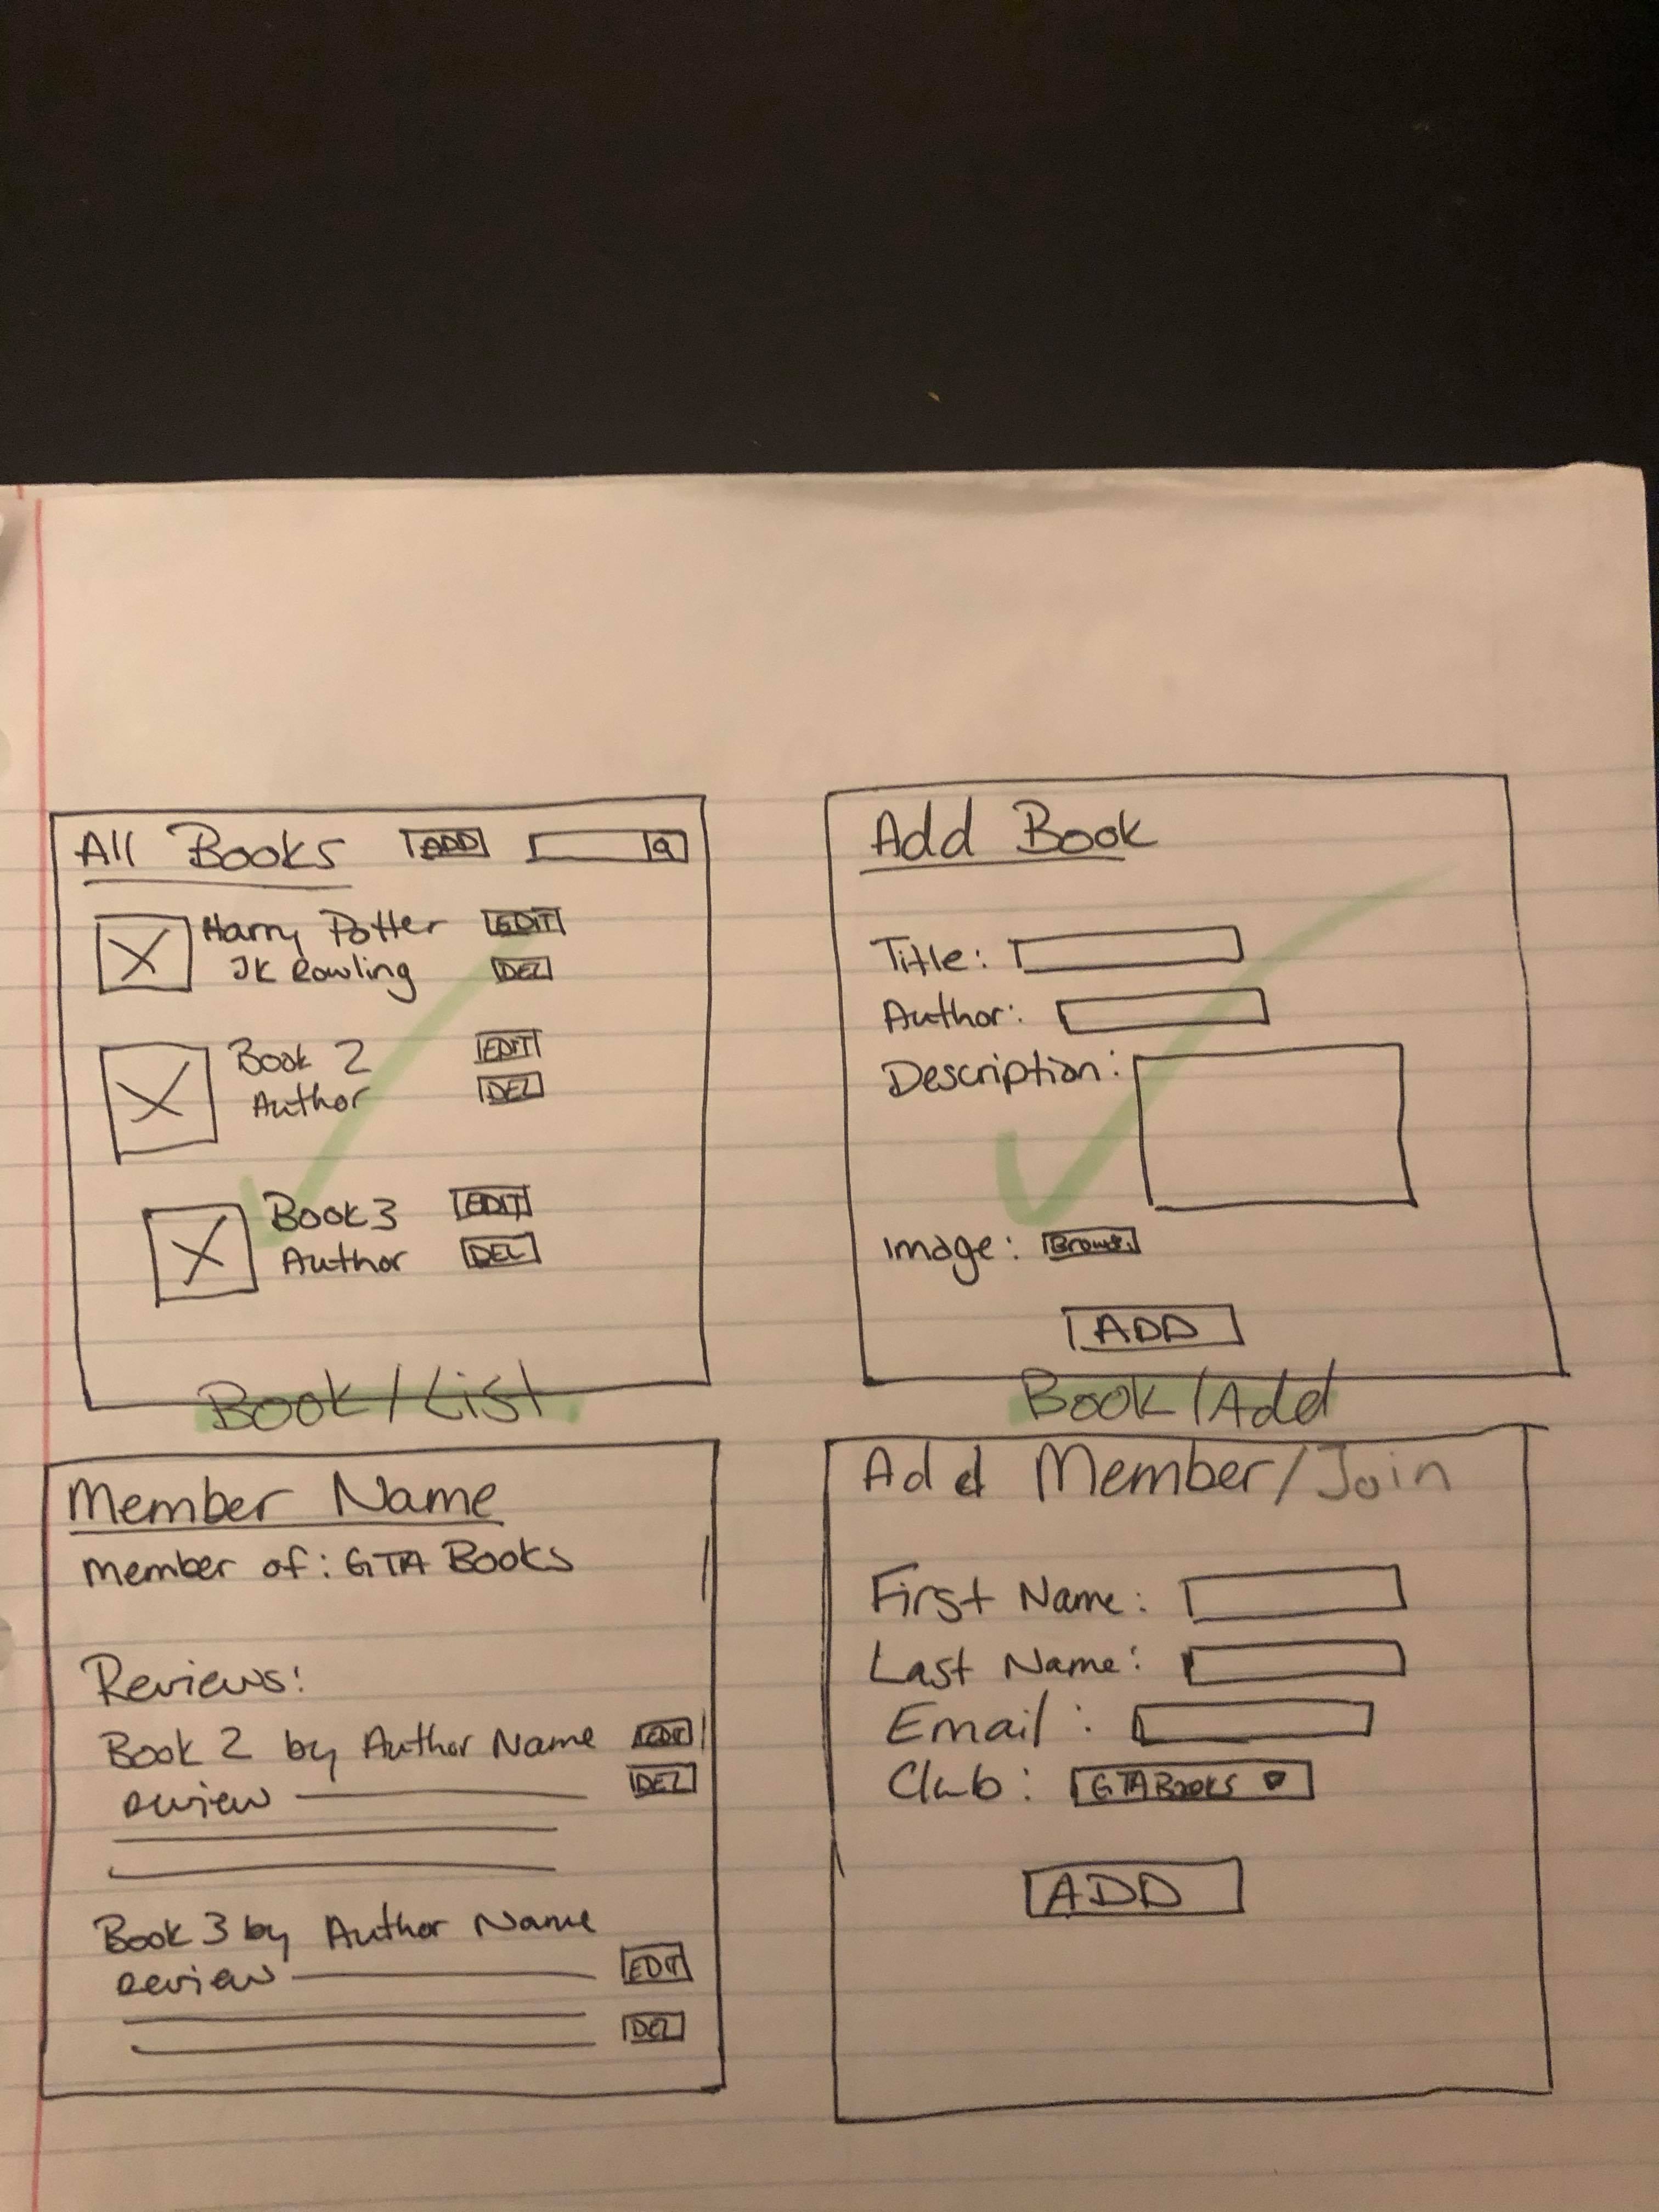 All Books ADD
Harry Potter EDIT
JK Rowling DEL
Book 2 EDIT
Author DEL
Book 3 EDIT
Author DEL
Book/List
Add Book
Title:
Author:
Description:
Image: Browse
ADD
Book/Add
Member Name
Member of: GTA Books
Reviews:
Book 2 by Author Name EDIT
Review DEL
Book 3 by Author Name
Review EDIT
DEL
Add Member/Join
First Name:
Last Name:
Email:
Club: GTA Books
ADD